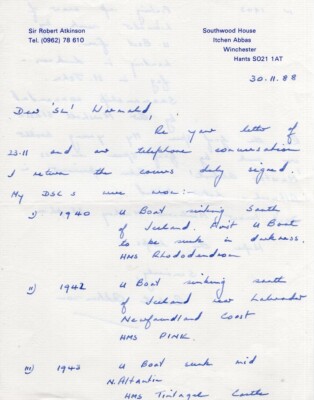 Sir Robert Atkinson
Tel. (0962) 78 610
Southwood House
Itchen Abbas
Winchester
Hants SO21 1AT
30.11.88
Dear 'Sir'
Re your letter of
23-11 and our telephone conversation
I return the covers duly signed.
My DSC's were won:-
i) 1940 U Boat sinking South
of Iceland. First U Boat
to be sunk in darkness.
HMS Rhododendron
ii) 1942 U Boat sinking south
of Iceland near Labrador
Newfoundland Coast
HMS PINK.
iii) 1943 U Boat sunk mid
N. Atlantic
HMS Tintagel Castle